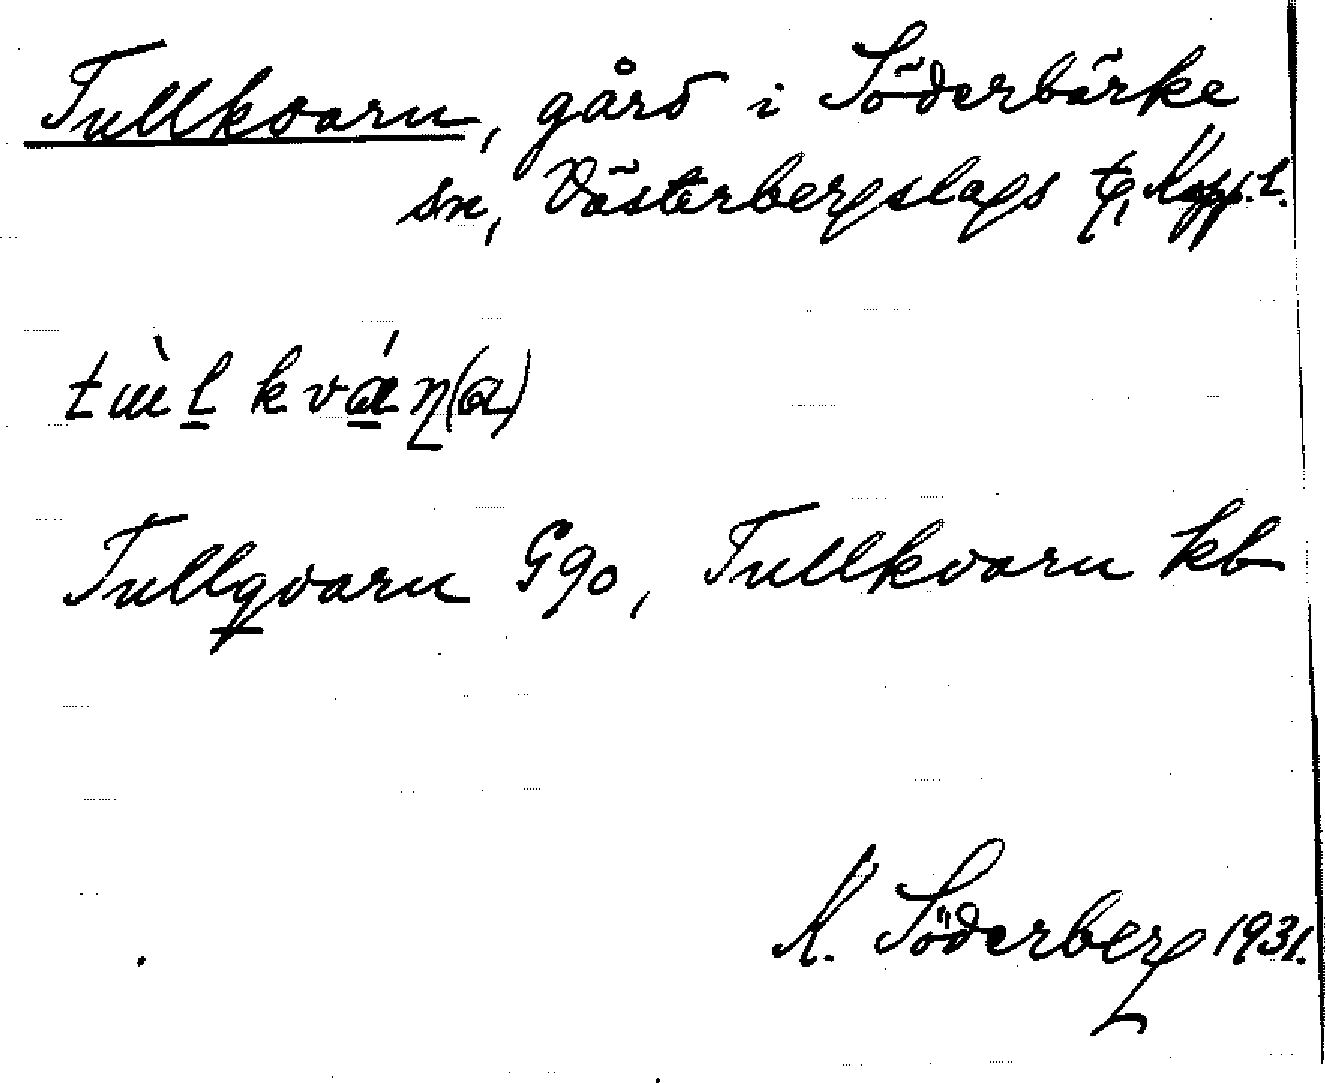 Tullkvarn, gård i Söderbärke
sn, Västerbergslags tg, Kopp. l.
tɯ̀l kván(a)
Tullqvarn Ggo, Tullkvarn kb
K. Söderberg 1931.